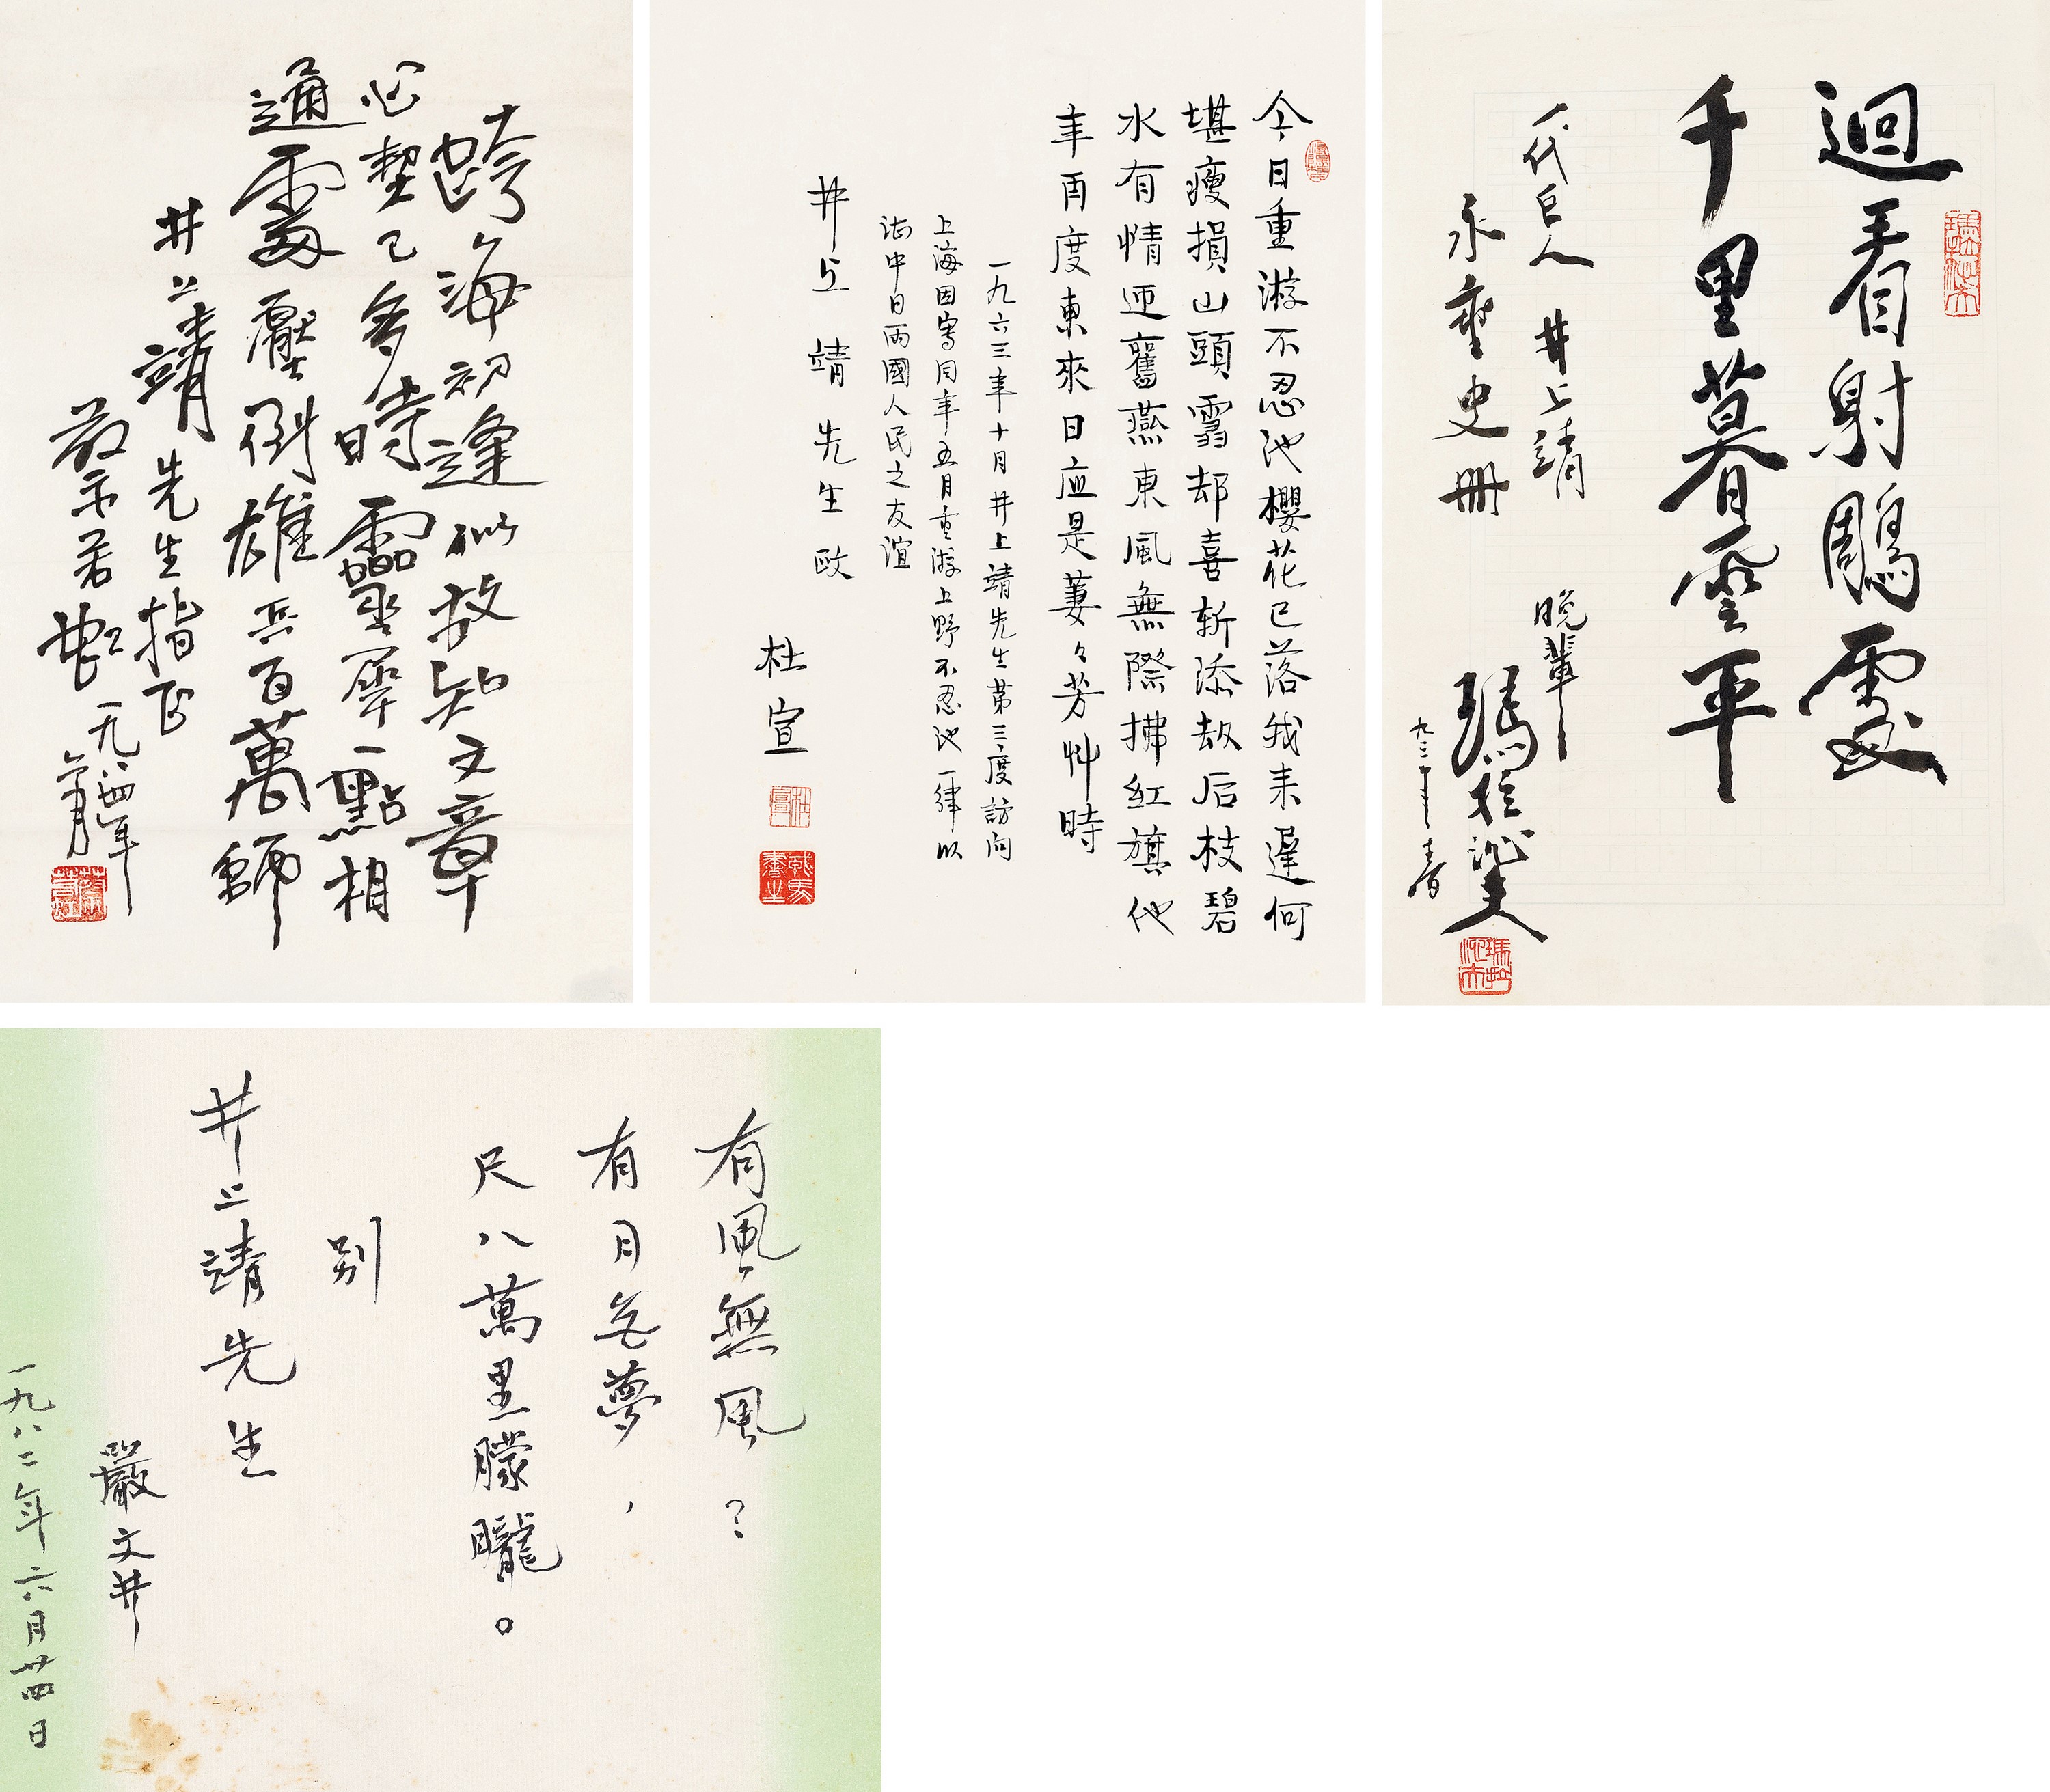 跨海初逢似故知文章
心契已多時靈犀一點相
通處壓倒雄兵百萬師
井上靖先生指正
蔡若虹一九八四年
今日重游不忍池櫻花已落我来遲何
堪瘦損山頭雪却喜新添劫后枝碧
水有情迎舊燕東風無際拂紅旗他
年再度東來日应是萋々芳艸時
一九六三年十月井上靖先生第三度訪问
上海因寫同年五月重游上野不忍池一律以
誌中日两國人民之友谊
井上靖先生政
杜宣
迴看射鵰處
千里暮雲平
一代巨人 井上靖
永垂史册
晚輩 瑪拉沁夫
九二年春
有風無風？
有月无夢，
尺八萬里朦朧。
别
井上靖先生
嚴文井
一九八二年六月廿四日